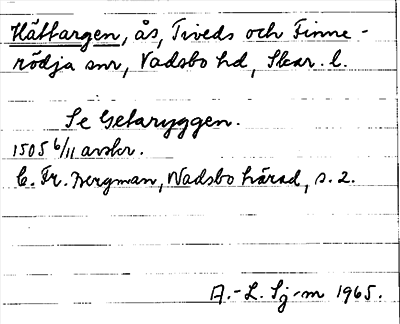 Hättargen, ås, Tiveds och Finne-
rödja snr, Vadsbo hd, Skar. l.
Se Getaryggen.
1505 6/11 avskr.
C. Fr. Bergman, Wadsbo härad, s. 2.
A.-L. Sj-m 1965.